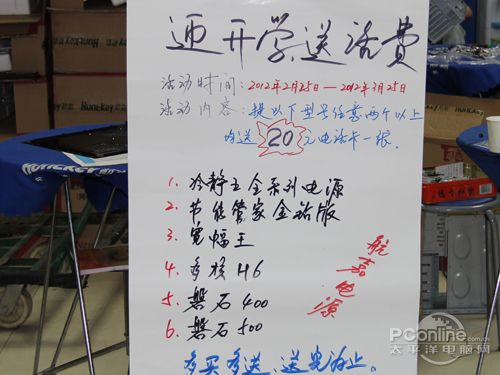 迎开学送话费
活动时间：2012年2月25日—2012年3月25日
活动内容：提以下型号任意两个以上
均送20元电话卡一张.
1. 冷静王全系列电源
2. 节能管家金钻版
3. 宽幅王
4. 多核H6
5. 磐石400
6. 磐石500
航嘉电源
多买多送、送完为止。
Huntkey
Huntkey
PConline.com.cn
太平洋电脑网